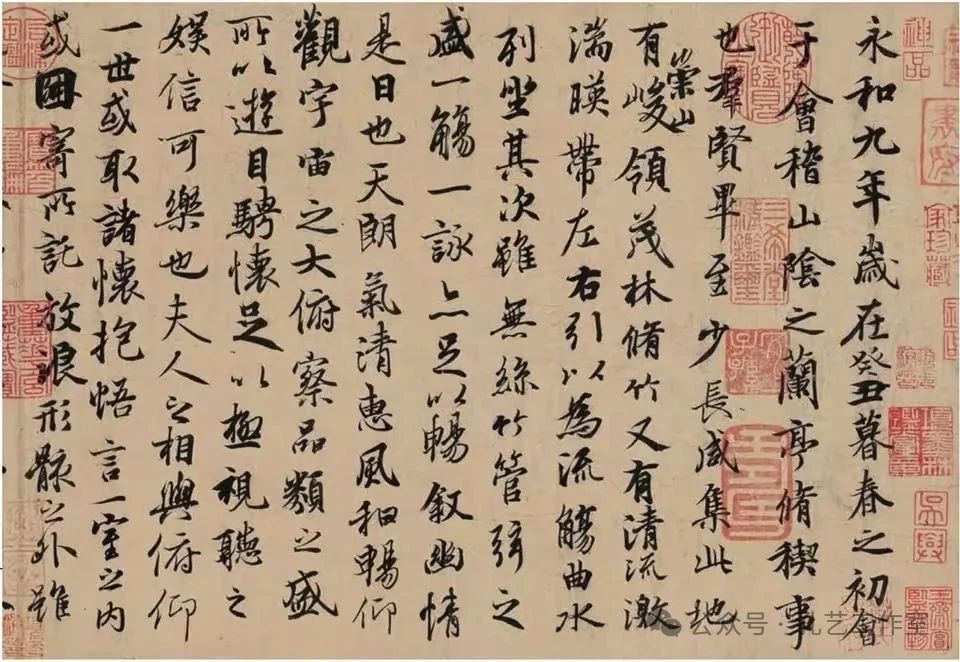 永和九年歲在癸丑暮春之初會
于會稽山陰之蘭亭脩稧事
也羣賢畢至少長咸集此地
有崇山峻領茂林脩竹又有清流激
湍暎帶左右引以為流觴曲水
列坐其次雖無絲竹管弦之
盛一觴一詠亦足以暢敘幽情
是日也天朗氣清惠風和暢仰
觀宇宙之大俯察品類之盛
所以遊目騁懷足以極視聽之
娛信可樂也夫人之相與俯仰
一世或取諸懷抱悟言一室之內
或因寄所託放浪形骸之外雖
神品
三希堂精鑑璽
公众号 · 艺作室